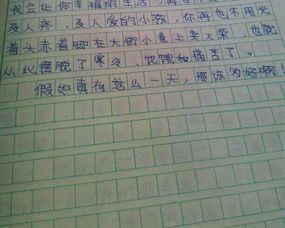 我会让你幸福的生活，再也
没人疼，没人爱的小孩，你再也不用光
着头赤着脚在大街小巷上卖火柴，也就
从此摆脱了寒冷、饥饿和痛苦了。
假如真有这么一天，那该多好啊！